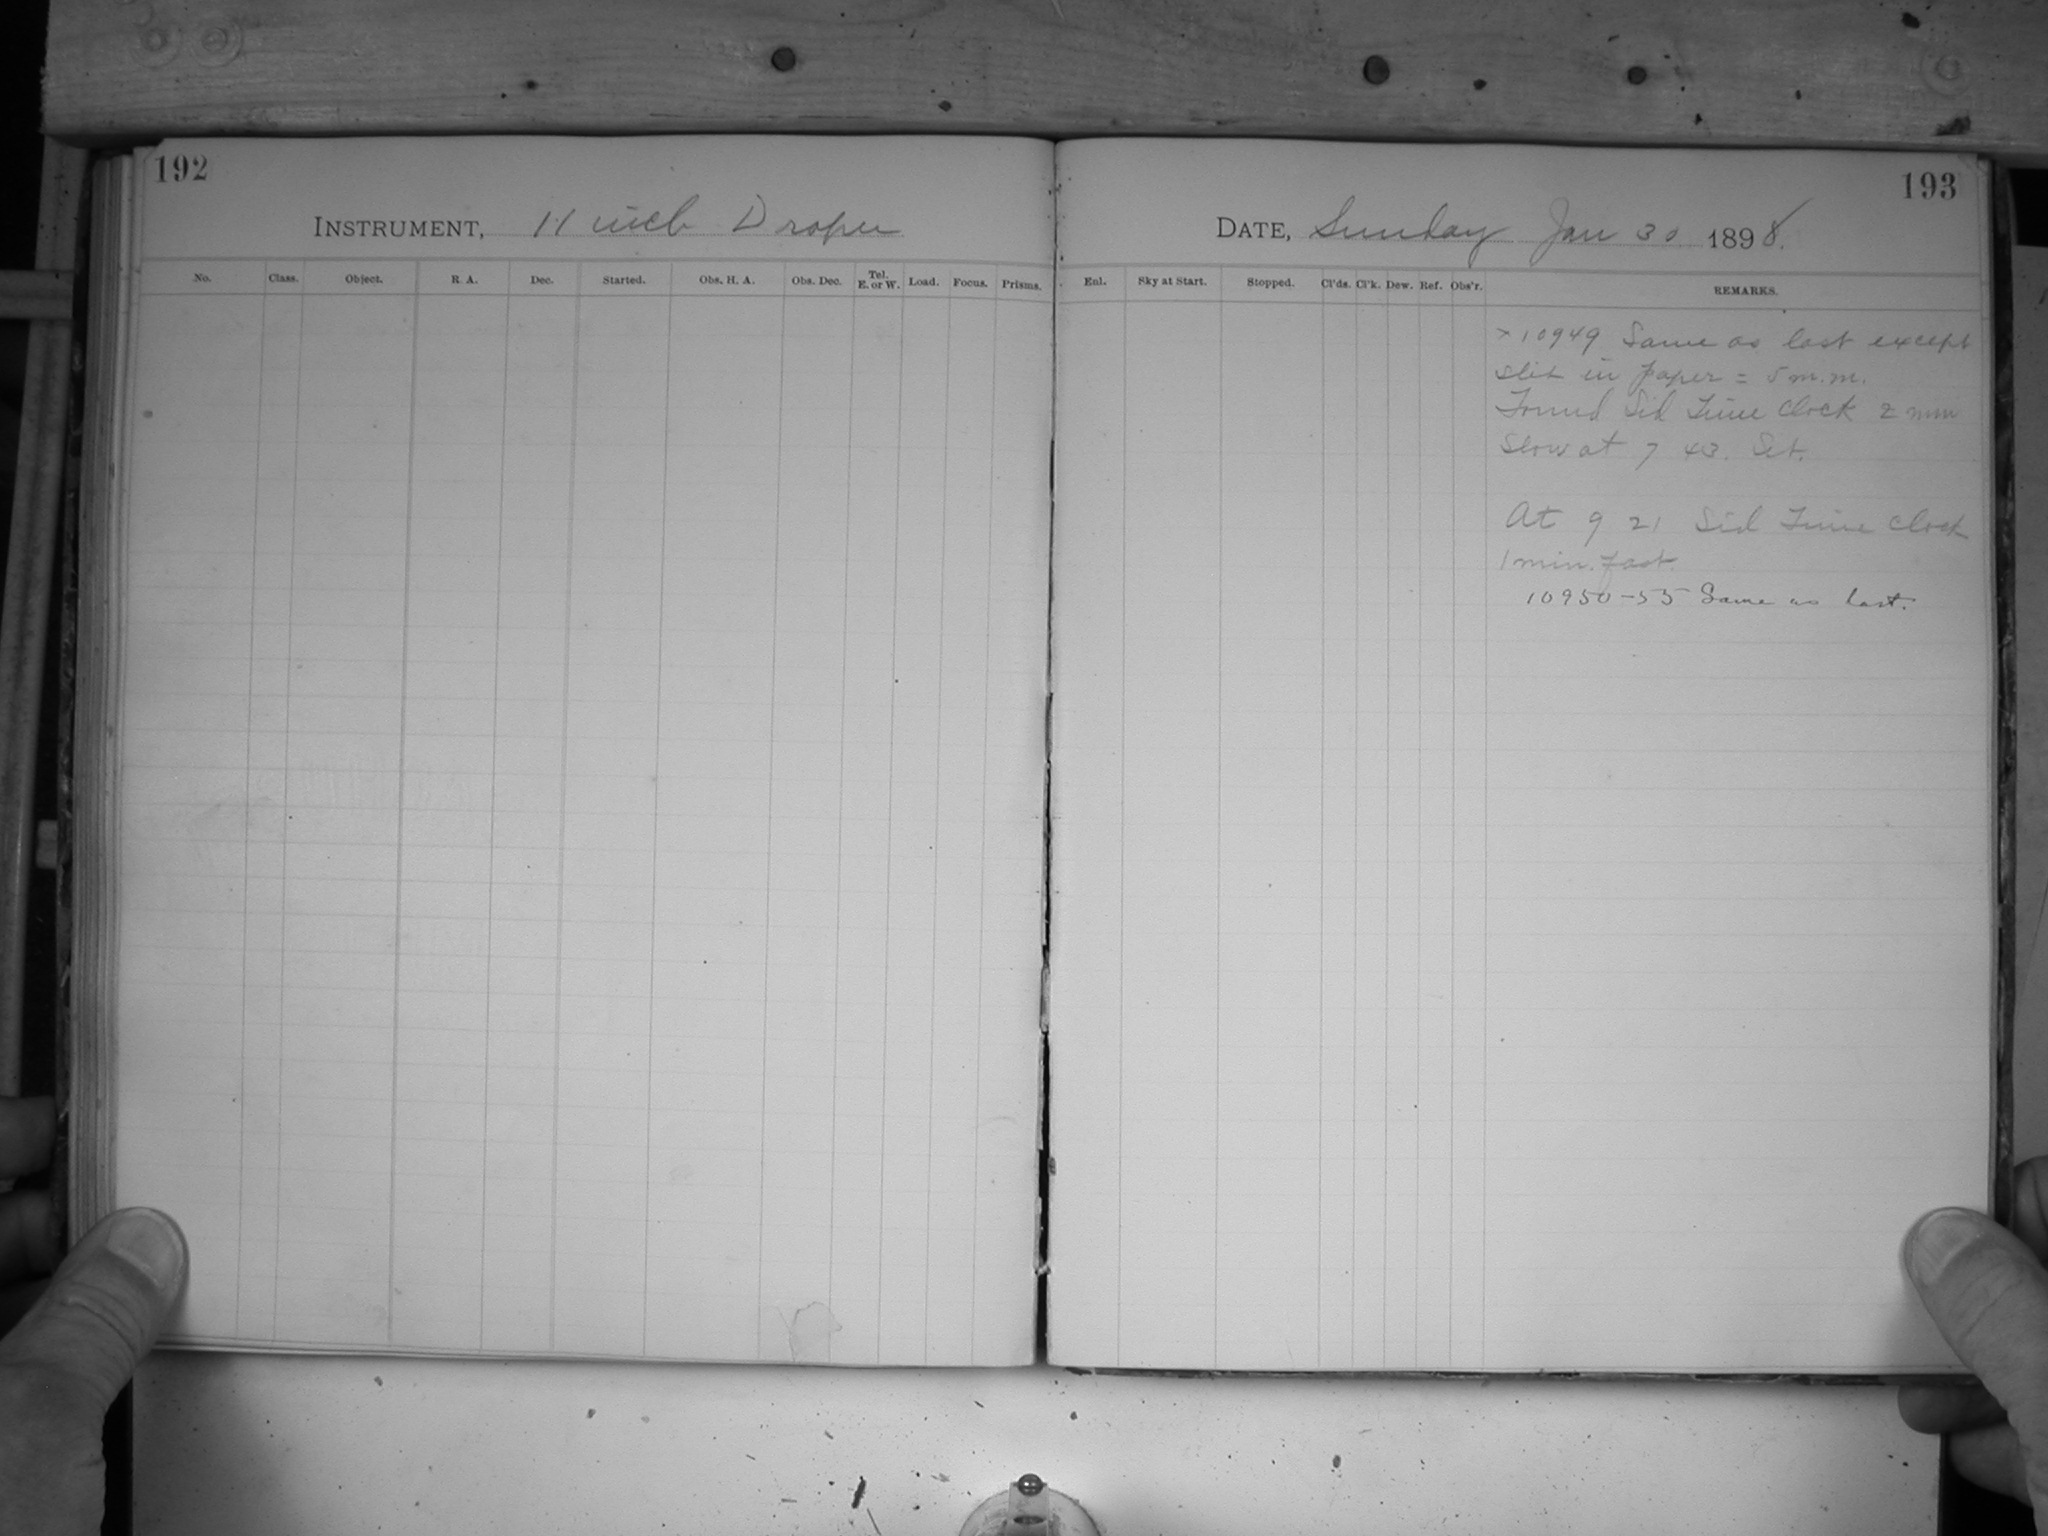 192
INSTRUMENT, 11 inch Draper
No. Class. Object. R. A. Dec. Started. Obs. H. A. Obs. Dec. Tel. E. or W. Load. Focus. Prisms.
193
DATE, Sunday Jan 30 1898.
Enl. Sky at Start. Stopped. Cl'ds. Cl'k. Dew. Ref. Obs'r. REMARKS.
x 10949 Same as last except
slit in paper = 5 m.m.
Found Sid Time Clock 2 min
slow at 7 43. Set.
At 9 21 Sid Time Clock
1 min. fast.
10950-55 Same as last.